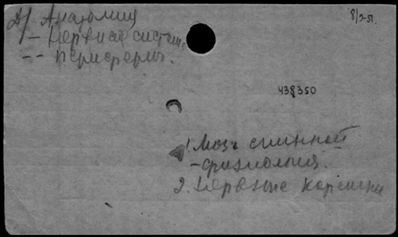 Анатомия 8/3-51.
— Нервная система.
-- Перифер.
438350
1. Мозг спинной
- физиология.
2. Нервные корешки